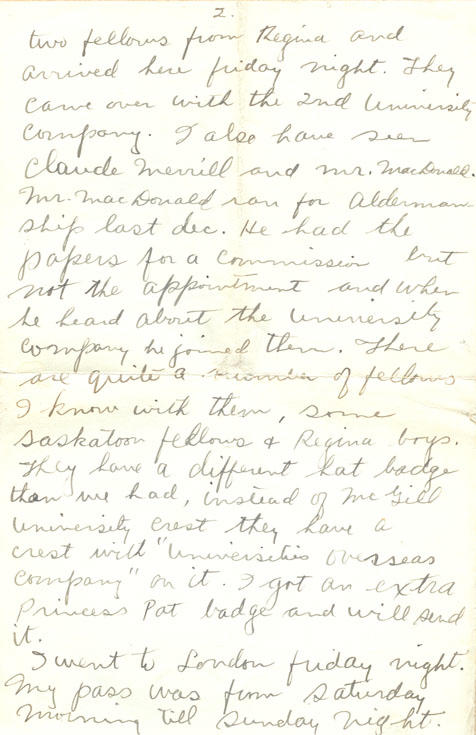 2.
two fellows from Regina and
arrived here friday night. They
came over with the 2nd University
Company. I also have seen
Claude Merrill and Mr. MacDonald.
Mr. MacDonald ran for Alderman-
ship last Dec. He had the
papers for a commission but
not the appointment and when
he heard about the University
Company he joined them. There
are quite a number of fellows
I know with them, some
Saskatoon fellows & Regina boys.
They have a different hat badge
than we had, instead of McGill
University crest they have a
crest with "Universities Overseas
Company" on it. I got an extra
Princess Pat badge and will send
it.
I went to London friday night.
My pass was from Saturday
morning till Sunday night.